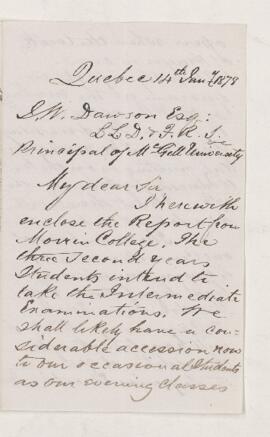 Quebec 14th Jany 1878
J. W. Dawson Esq:
L L D, & F. R. S.
Principal of McGill University
My dear Sir
I herewith
enclose the Report from
Morrin College. The
three second years
Students intend to
take the Intermediate
Examinations. We
shall likely have a con-
siderable accession now
to our occasional students
as our evening classes